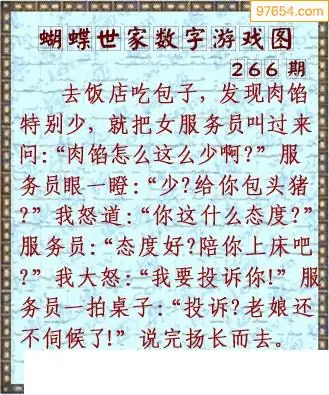 97654.com
蝴蝶世家数字游戏图
266期
去饭店吃包子，发现肉馅
特别少，就把女服务员叫过来
问:“肉馅怎么这么少啊?” 服
务员眼一瞪:“少?给你包头猪
?” 我怒道:“你这什么态度?”
服务员:“态度好?陪你上床吧
?” 我大怒:“我要投诉你!” 服
务员一拍桌子:“投诉?老娘还
不伺候了!” 说完扬长而去。